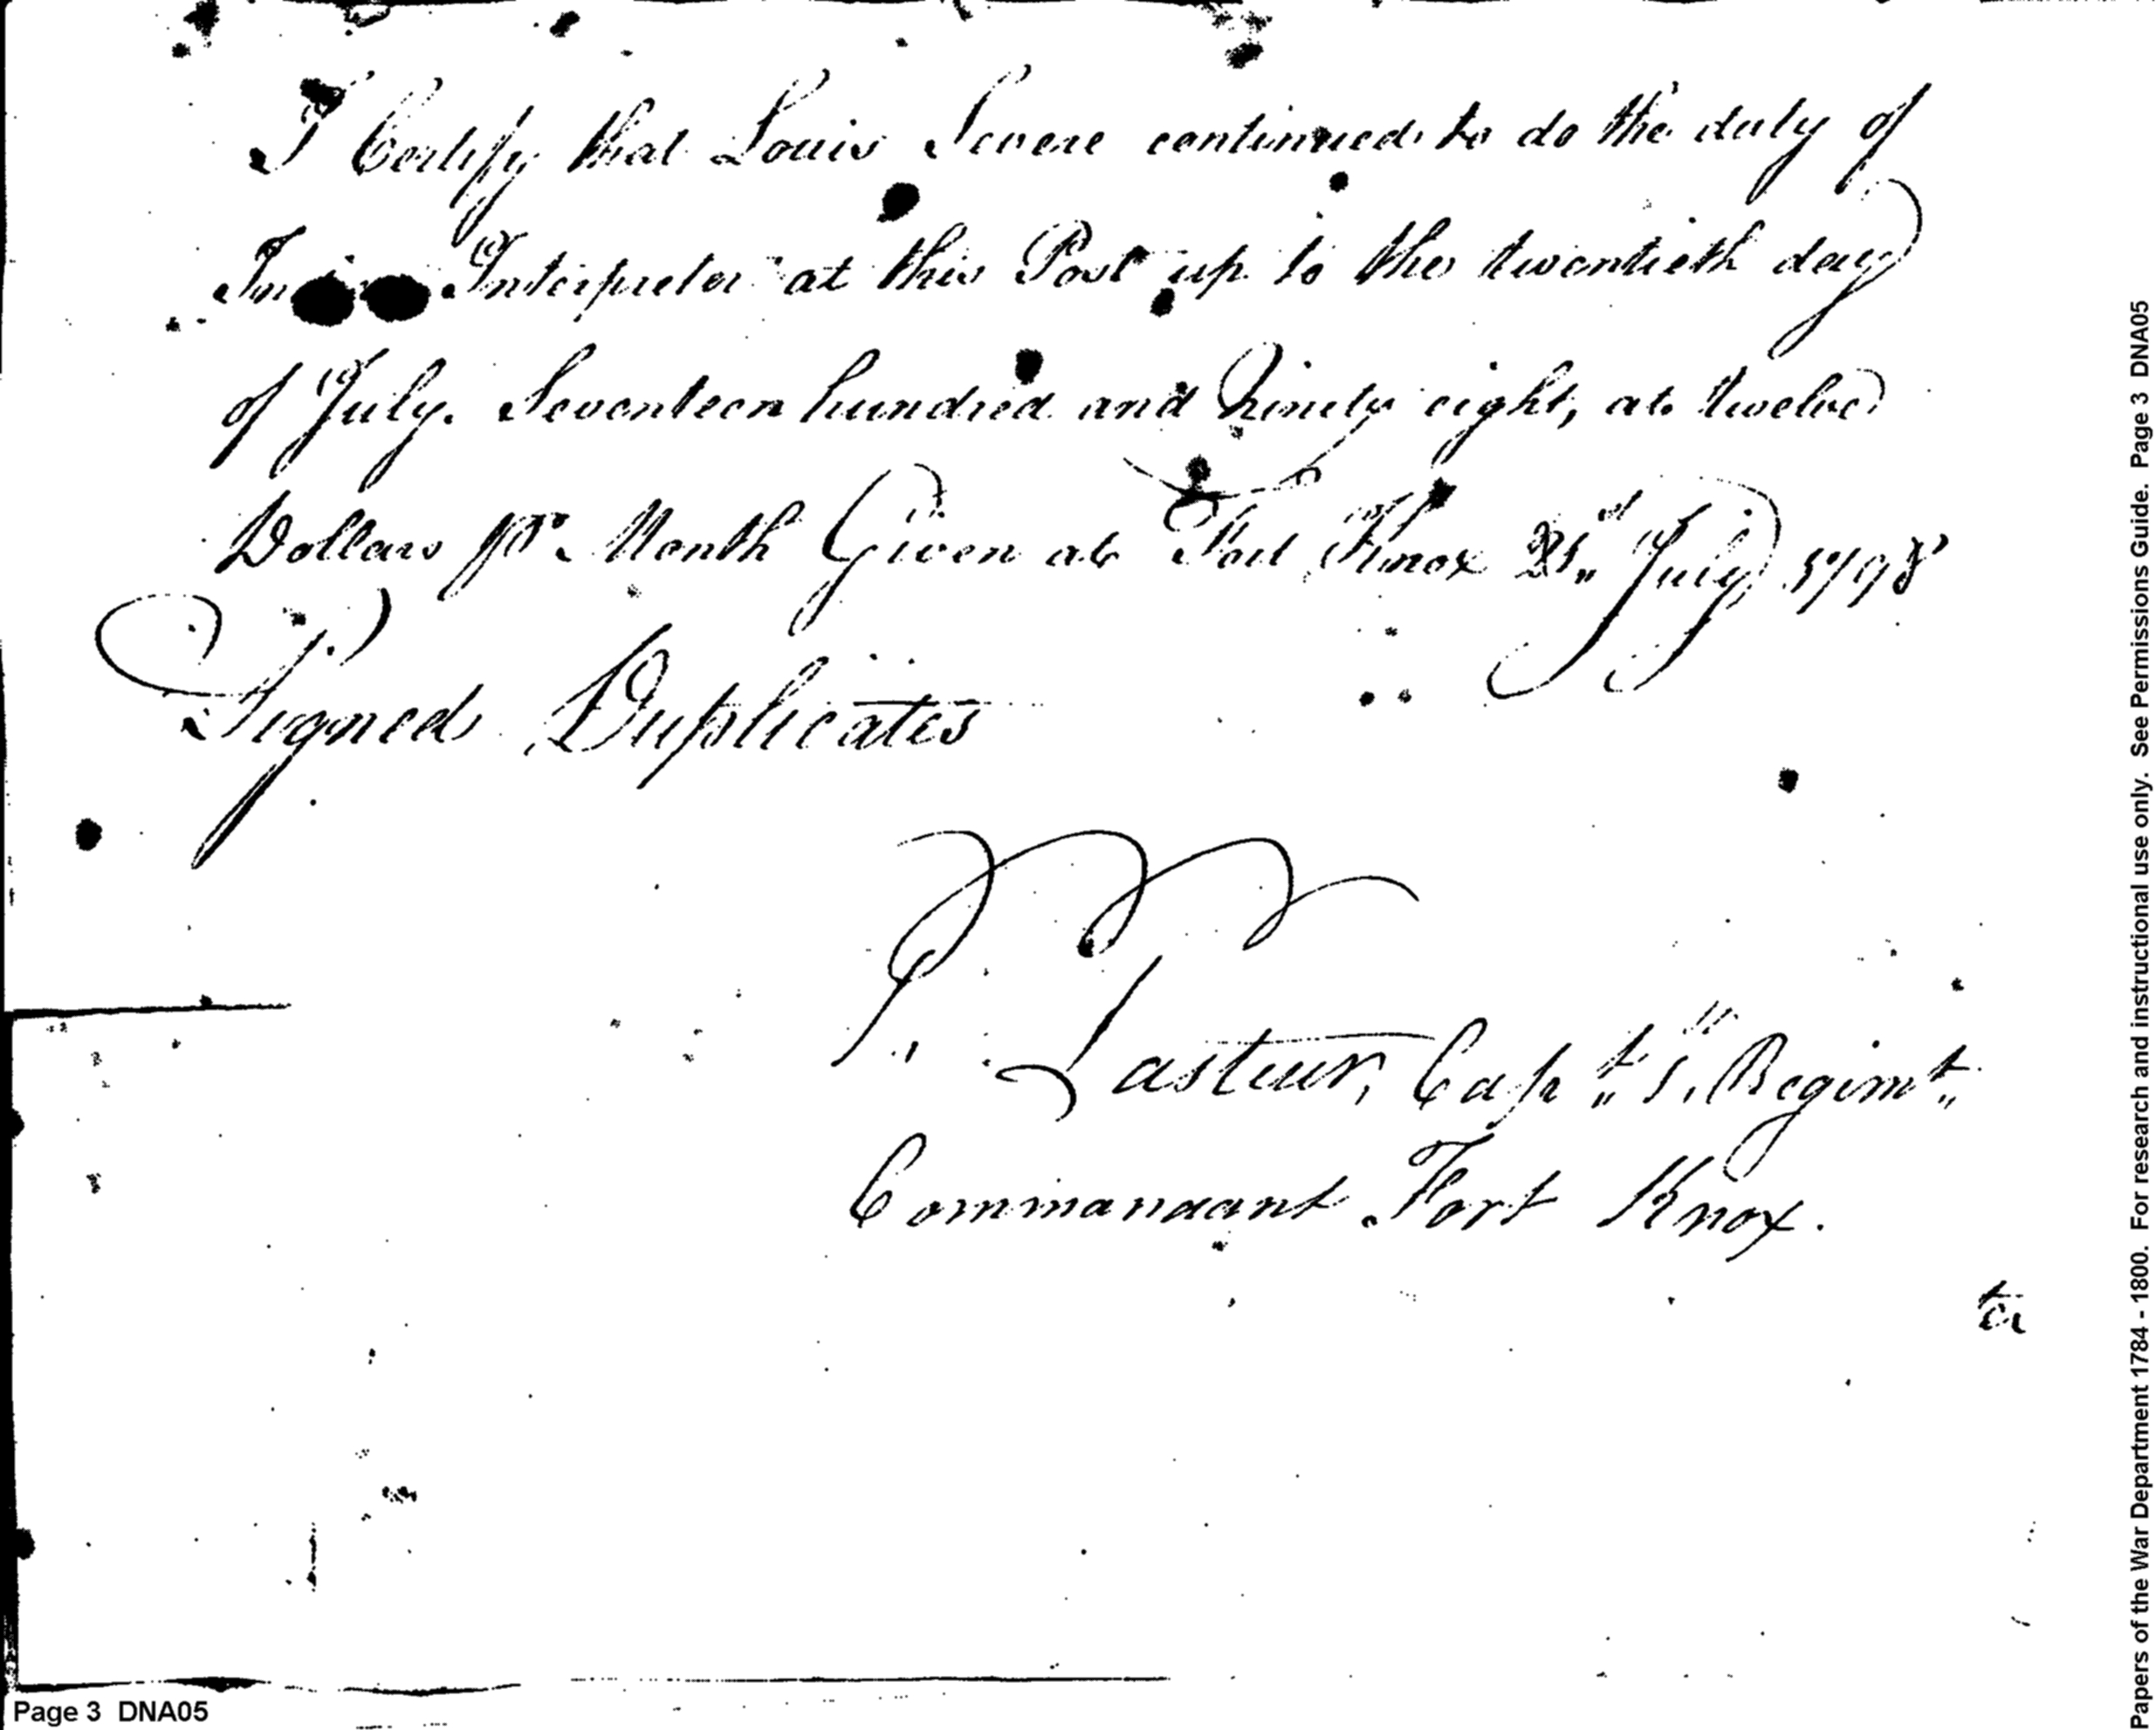 I Certify that Louis Severe continued to do the duty of
Interpreter at this Post up to the twentieth day
of July. Seventeen hundred and Ninety eight, at twelve
Dollars pr. Month Given at Fort Knox 21st July 1798
Signed Duplicates
P. Pasteur, Capt 1st Regimt.
Commandant Fort Knox.
Page 3 DNA05
Papers of the War Department 1784 - 1800. For research and instructional use only. See Permissions Guide. Page 3 DNA05